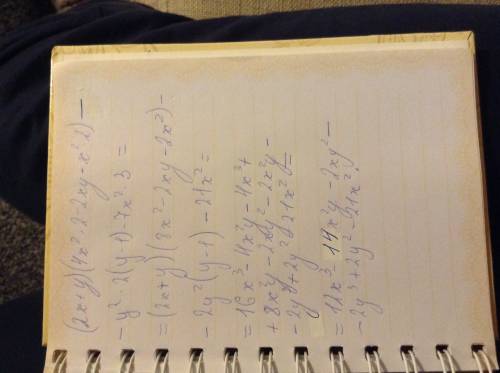 (2x+y)(4x²·2-2xy-x²·2)—
-y²·2(y-1)-7x²·3=
=(2x+y)(8x²-2xy-2x²)-
-2y²(y-1)-21x²=
=16x³-4x²y-4x³+
+8x²y-2xy²-2x²y-
-2y³+2y²-21x²=
=12x³-14x²y-2xy²—
-2y³+2y²-21x².